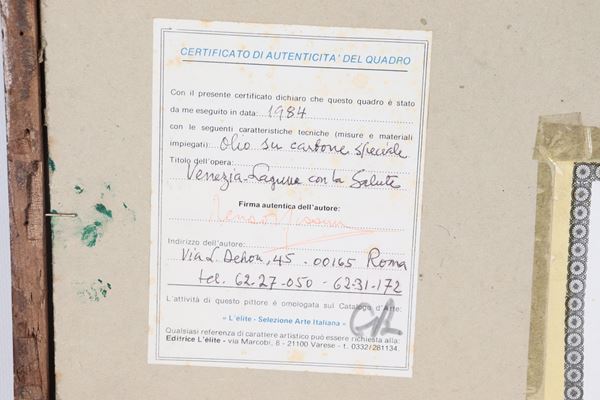 CERTIFICATO DI AUTENTICITA' DEL QUADRO
Con il presente certificato dichiaro che questo quadro è stato
da me eseguito in data: 1984
con le seguenti caratteristiche tecniche (misure e materiali
impiegati): Olio su cartone speciale
Titolo dell'opera:
Venezia-Laguna con la Salute
Firma autentica dell'autore:
Indirizzo dell'autore:
Via L. Dehon, 45 - 00165 Roma
tel. 62-27-050 - 62-31-172
L'attività di questo pittore è omologata sul Catalogo d'Arte:
« L'élite - Selezione Arte Italiana »
Qualsiasi referenza di carattere artistico può essere richiesta alla:
Editrice L'élite - via Marcobi, 8 - 21100 Varese - t. 0332/281134